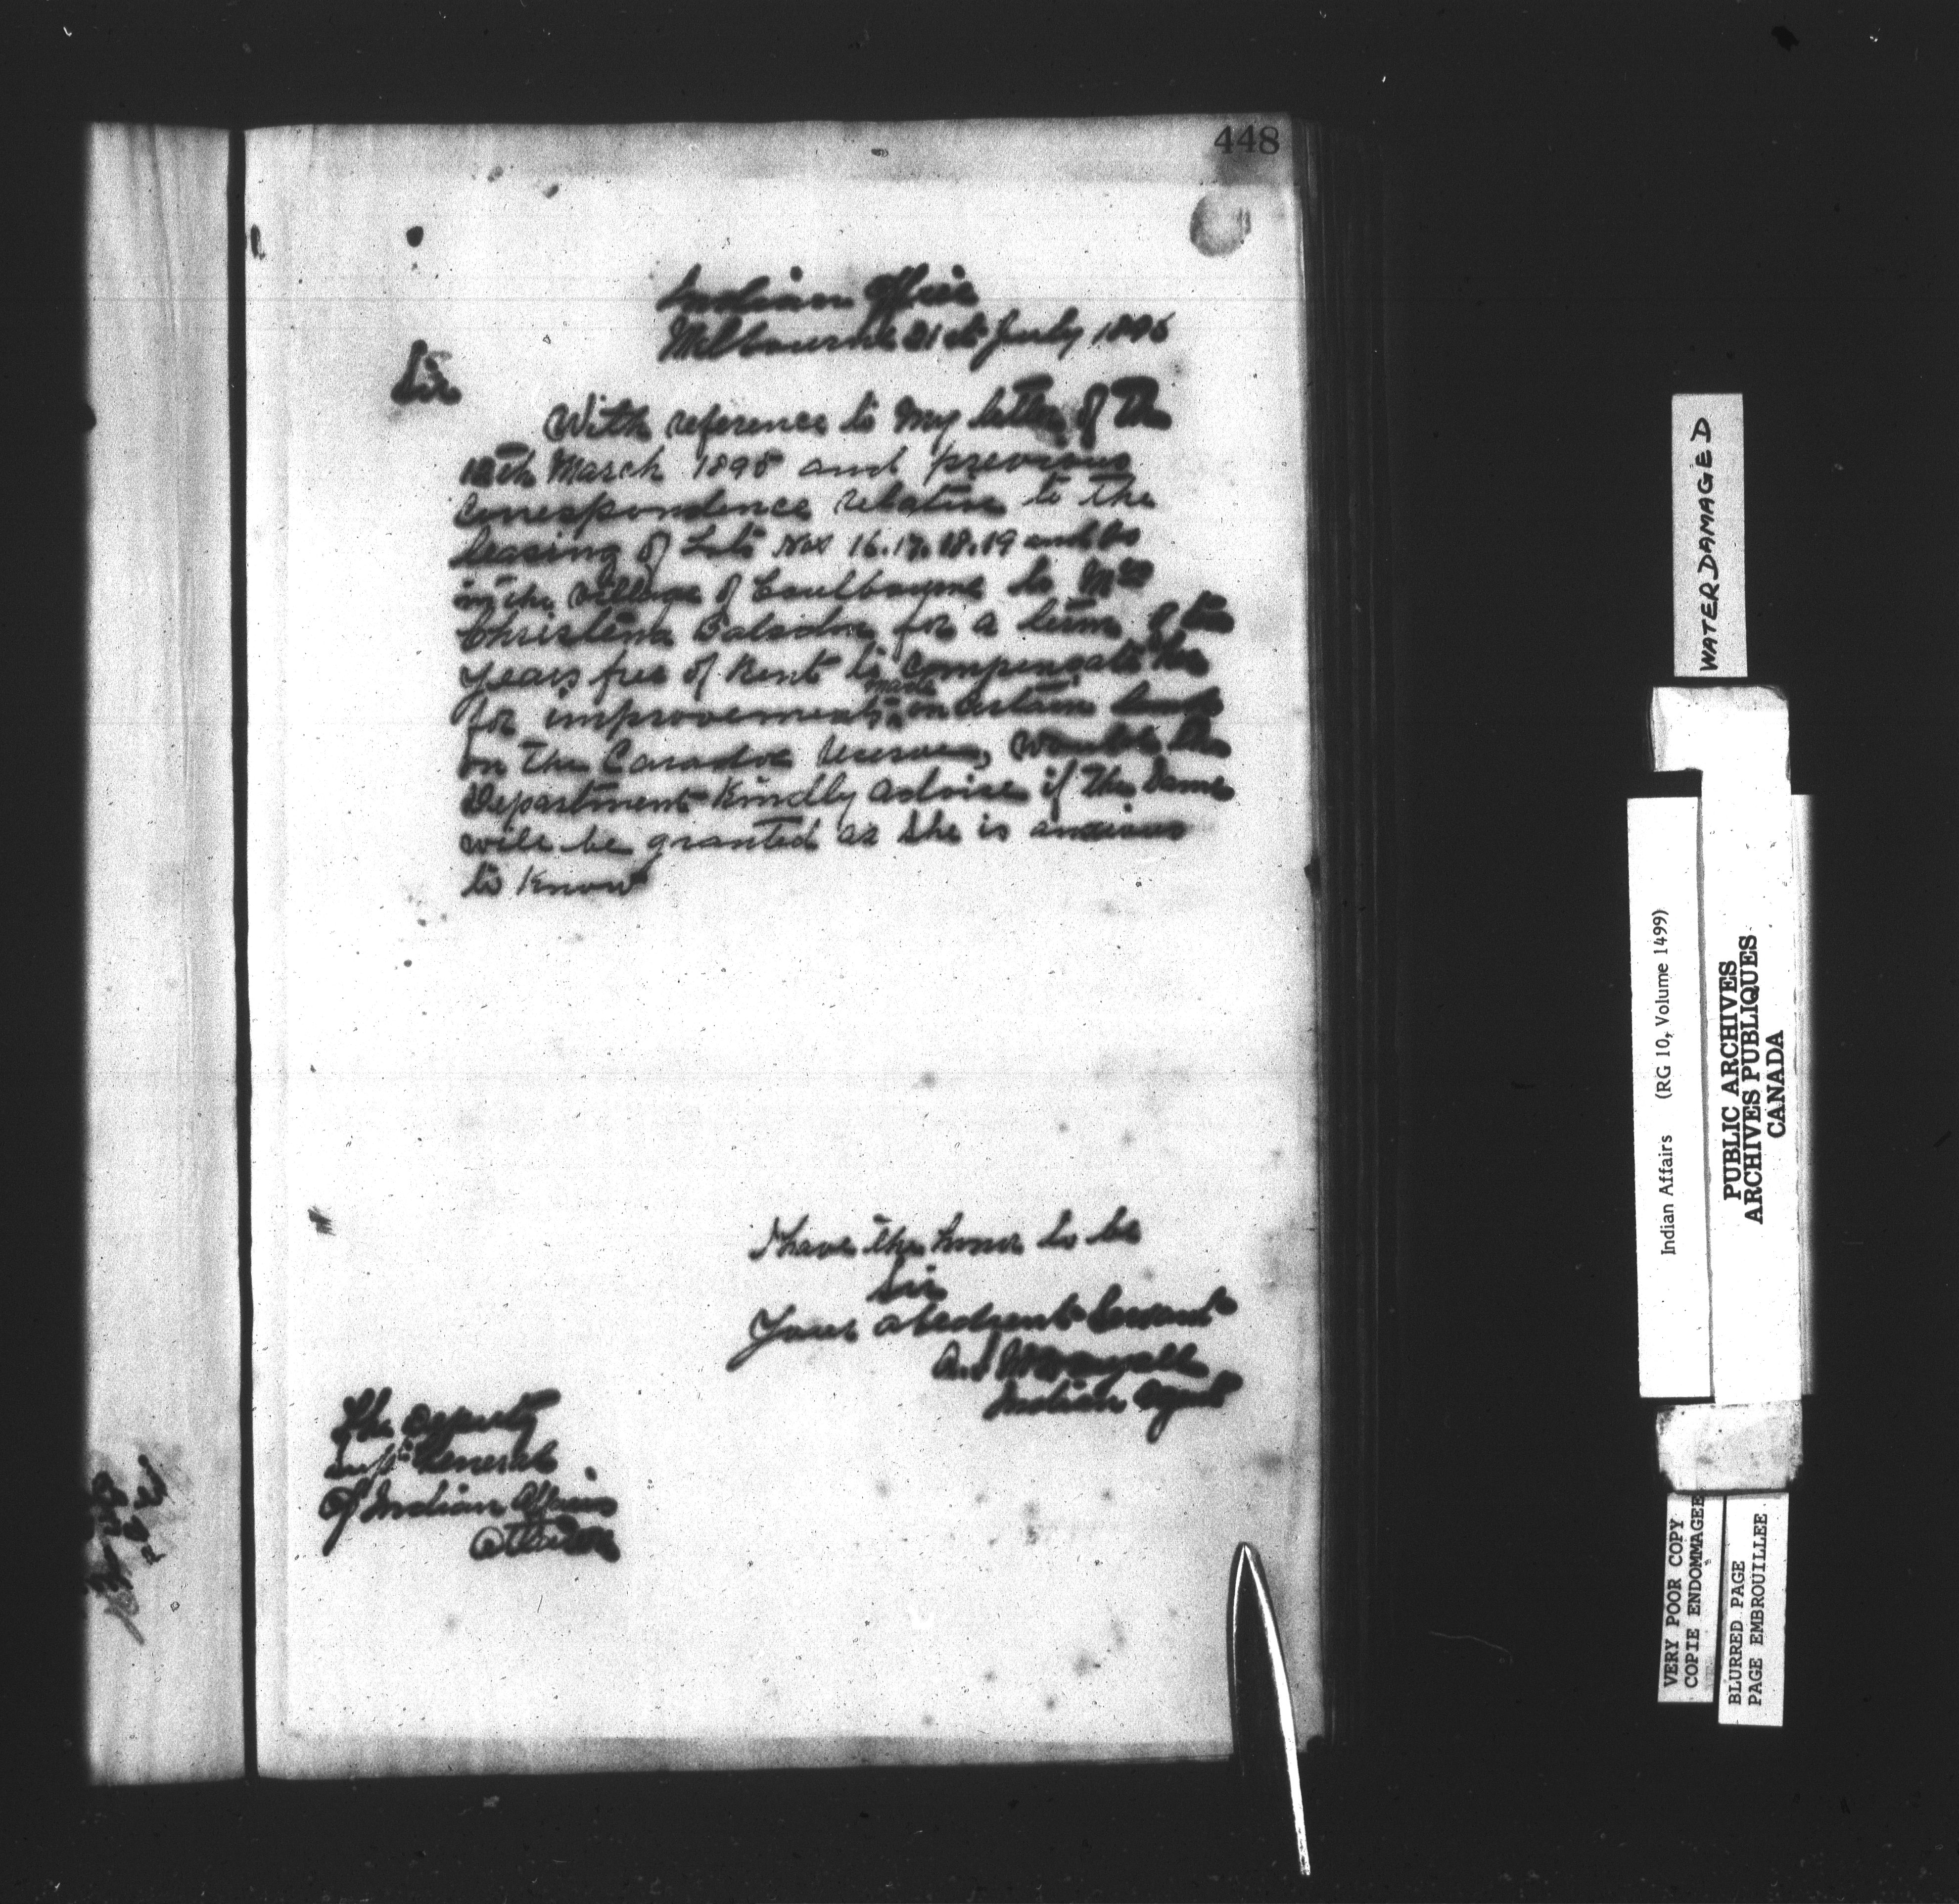 448
Indian Office
Melbourne 21st July 1896
Sir
With reference to my letter of the
12th March 1895 and previous
Correspondence relative to the
leasing of Lots Nos 16.17.18.19 and 20
in the Village of Coulbourne to Mrs
Christena for a term of ten
years free of Rent to Compensate her
made
for improvements on Certain lands
on the Caradoc Reserve, would the
Department Kindly advise if the same
will be granted as she is anxious
to Know
I have the honor to be
Sir
Your obedient Servant
Indian Agent
The Deputy
Supt General
Of Indian Affairs
Ottawa
WATERDAMAGED
Indian Affairs (RG 10, Volume 1499)
PUBLIC ARCHIVES
ARCHIVES PUBLIQUES
CANADA
VERY POOR COPY
COPIE ENDOMMAGEE
BLURRED PAGE
PAGE EMBROUILLEE